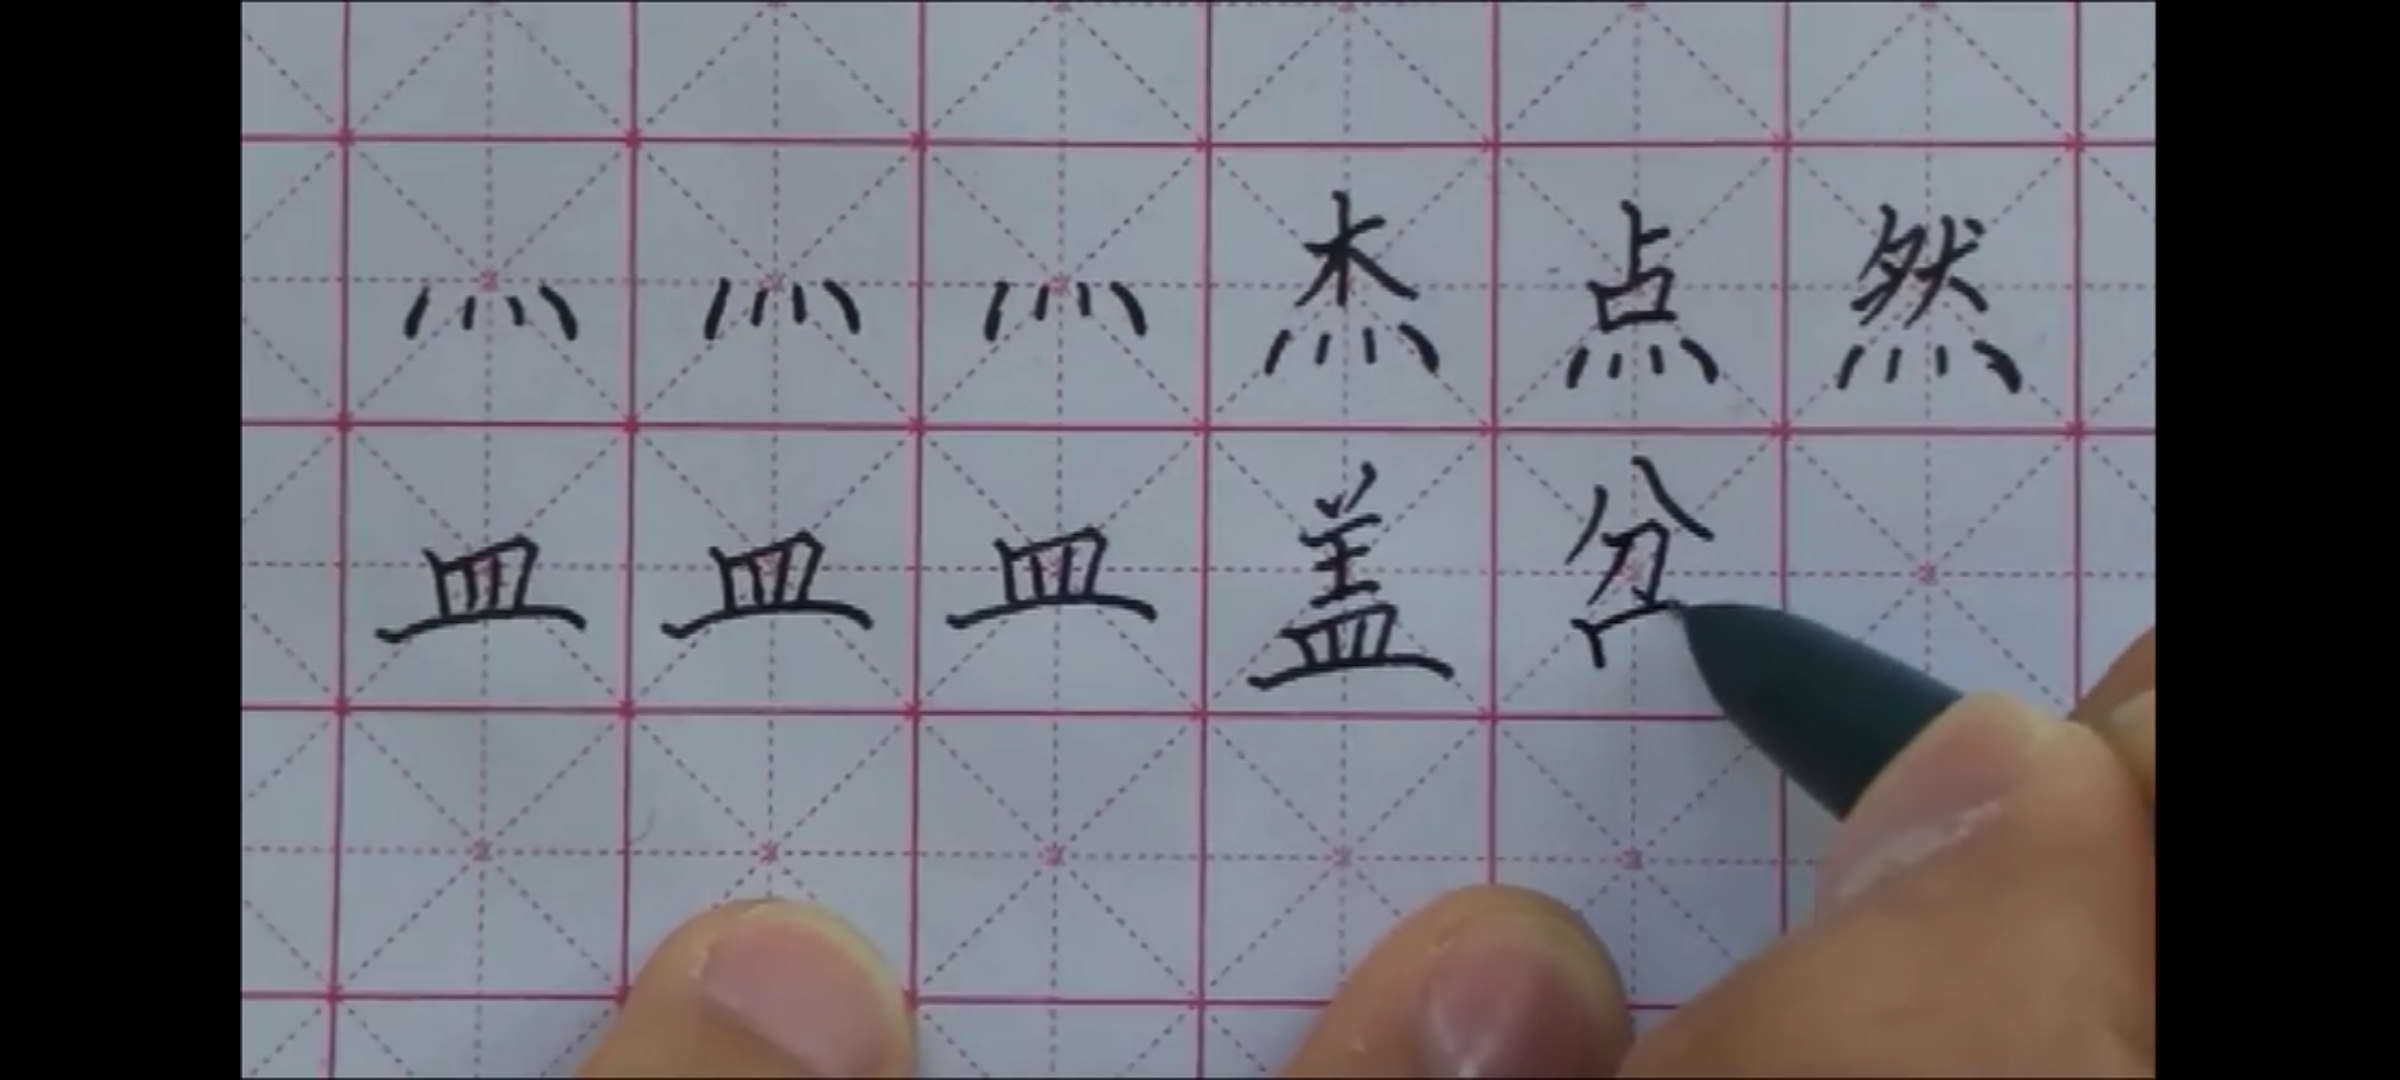 灬 灬 灬 杰 点 然
皿 皿 皿 盖